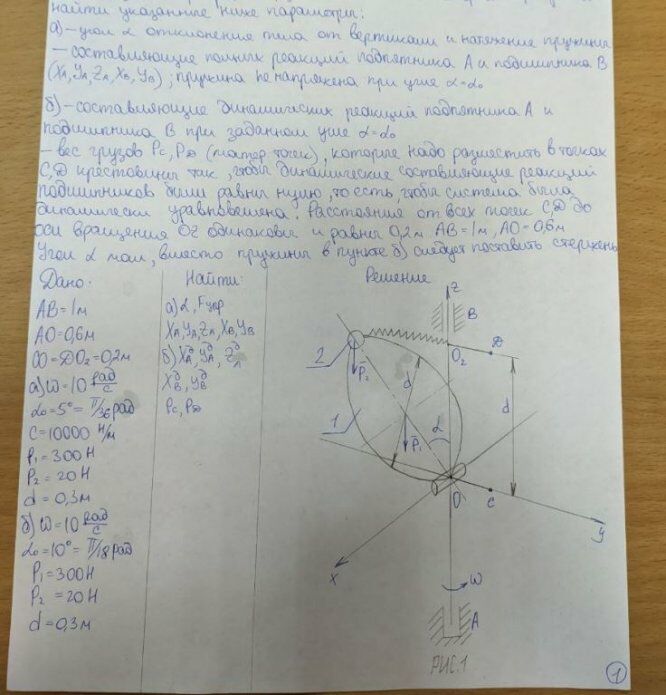 найти указанные ниже параметры:
а) – угол α отклонения тела от вертикали и натяжение пружины
– составляющие полных реакций подпятника А и подшипника В
(XA, YA, ZA, XB, YB); пружина не напряжена при угле α=α₀
б) – составляющие динамических реакций подпятника А и
подшипника В при заданном угле α=α₀
– вес грузов Pc, PD (матер точек), которые надо разместить в точках
С, D крестовины так, чтобы динамические составляющие реакций
подшипников были равны нулю, то есть, чтобы система была
динамически уравновешена. Расстояние от всех точек C, D до
оси вращения Oz одинаковы и равны 0,2м. AB=1м, AO=0,6м
Угол α мал, вместо пружины в пункте б) следует поставить стержень
Дано:
AB=1м
AO=0,6м
CO=DO₂=0,2м
а) ω=10 рад/с
α₀=5°=π/36 рад
c=10000 Н/м
P₁=300Н
P₂=20Н
d=0,3м
б) ω=10 рад/с
α₀=10°=π/18 рад
P₁=300Н
P₂=20Н
d=0,3м
Найти:
а) α, Fупр
XA, YA, ZA, XB, YB
б) XAд, YAд, ZAд
XBд, YBд
Pc, PD
Решение
z
B
D
O₂
2
P₂
d
d
1
P₁
α
O
C
y
x
ω
A
РИС.1
1